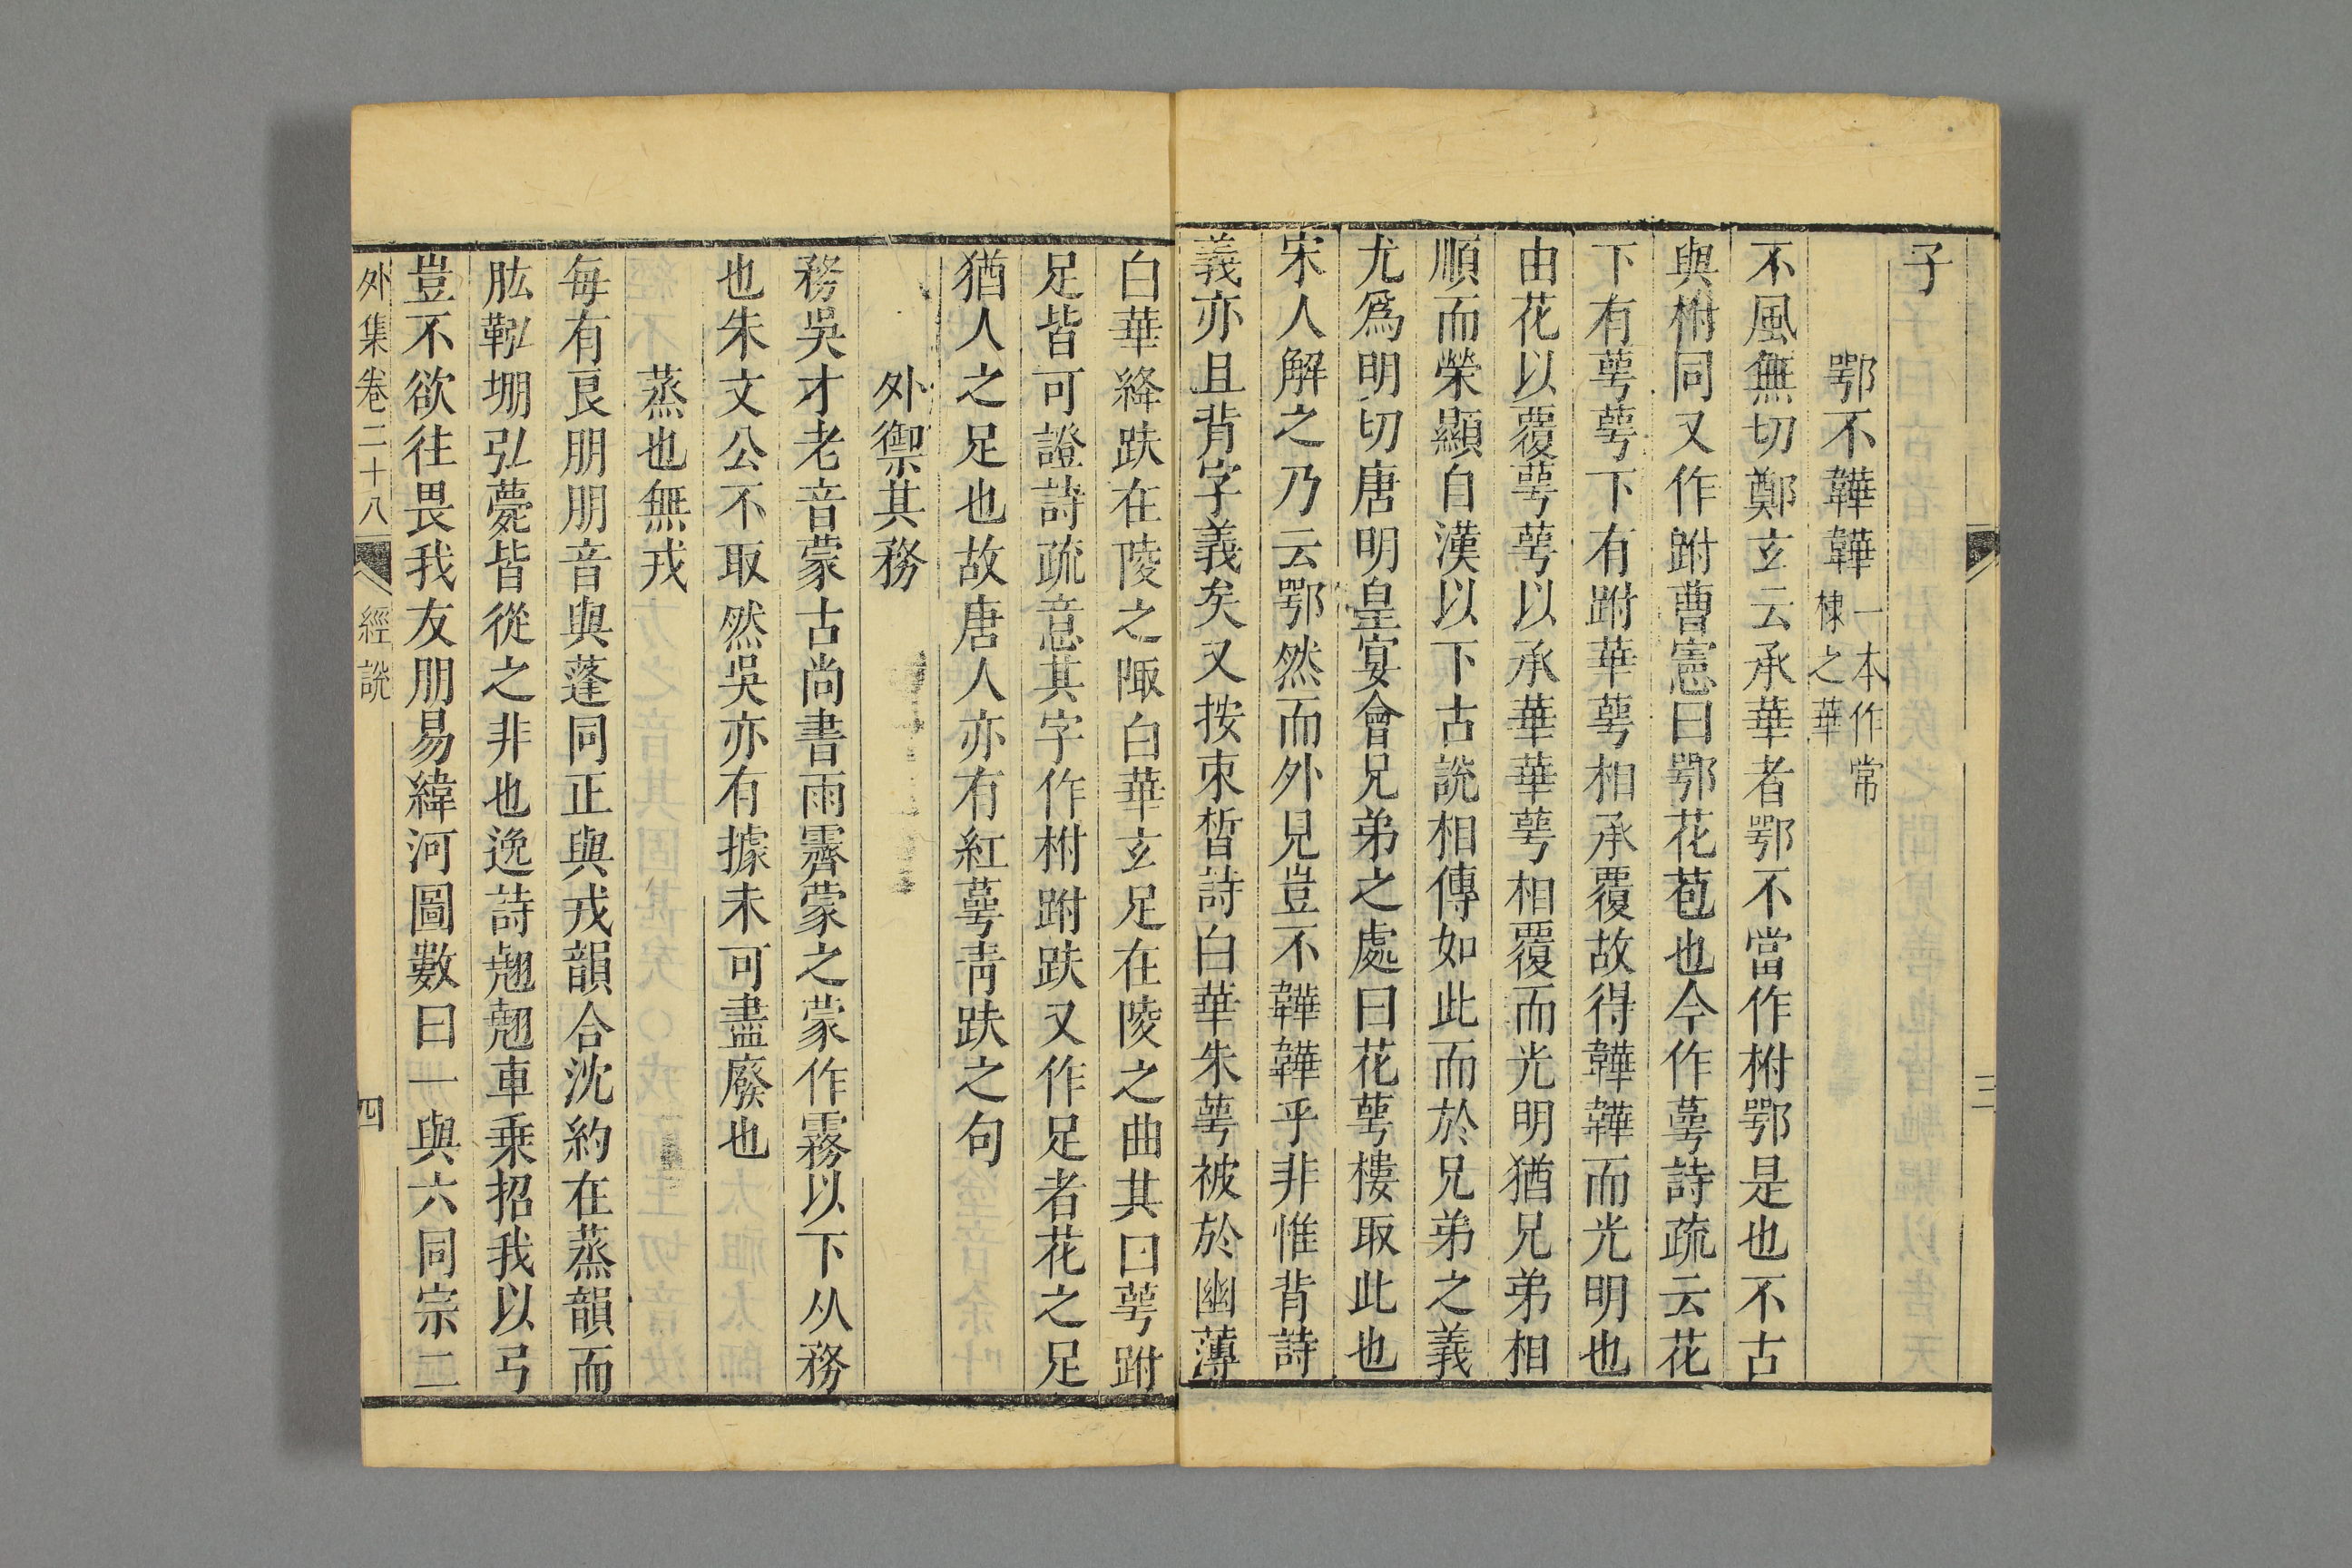 子
鄂不韡韡一本作常棣之華
不風無切鄭玄云承華者鄂不當作柎鄂是也不古
與柎同又作跗曹憲曰鄂花苞也今作萼詩疏云花
下有萼萼下有跗華萼相承覆故得韡韡而光明也
由花以覆萼萼以承華華萼相覆而光明猶兄弟相
順而榮顯自漢以下古說相傳如此而於兄弟之義
尤爲明切唐明皇宴會兄弟之處曰花萼樓取此也
宋人解之乃云鄂然而外見豈不韡韡乎非惟背詩
義亦且背字義矣又按束晳詩白華朱萼被於幽薄
三
白華絳趺在陵之陬白華玄足在陵之曲其曰萼跗
足皆可證詩疏意其字作柎跗趺又作足者花之足
猶人之足也故唐人亦有紅萼靑趺之句
外禦其務
務吳才老音蒙古尚書雨霽蒙之蒙作霧以下从務
也朱文公不取然吳亦有據未可盡廢也
蒸也無戎
每有良朋朋音與蓬同正與戎韻合沈約在蒸韻而
肱鞃堋弘薨皆從之非也逸詩翹翹車乗招我以弓
豈不欲往畏我友朋易緯河圖數曰一與六同宗二
外集卷二十八 經說 四